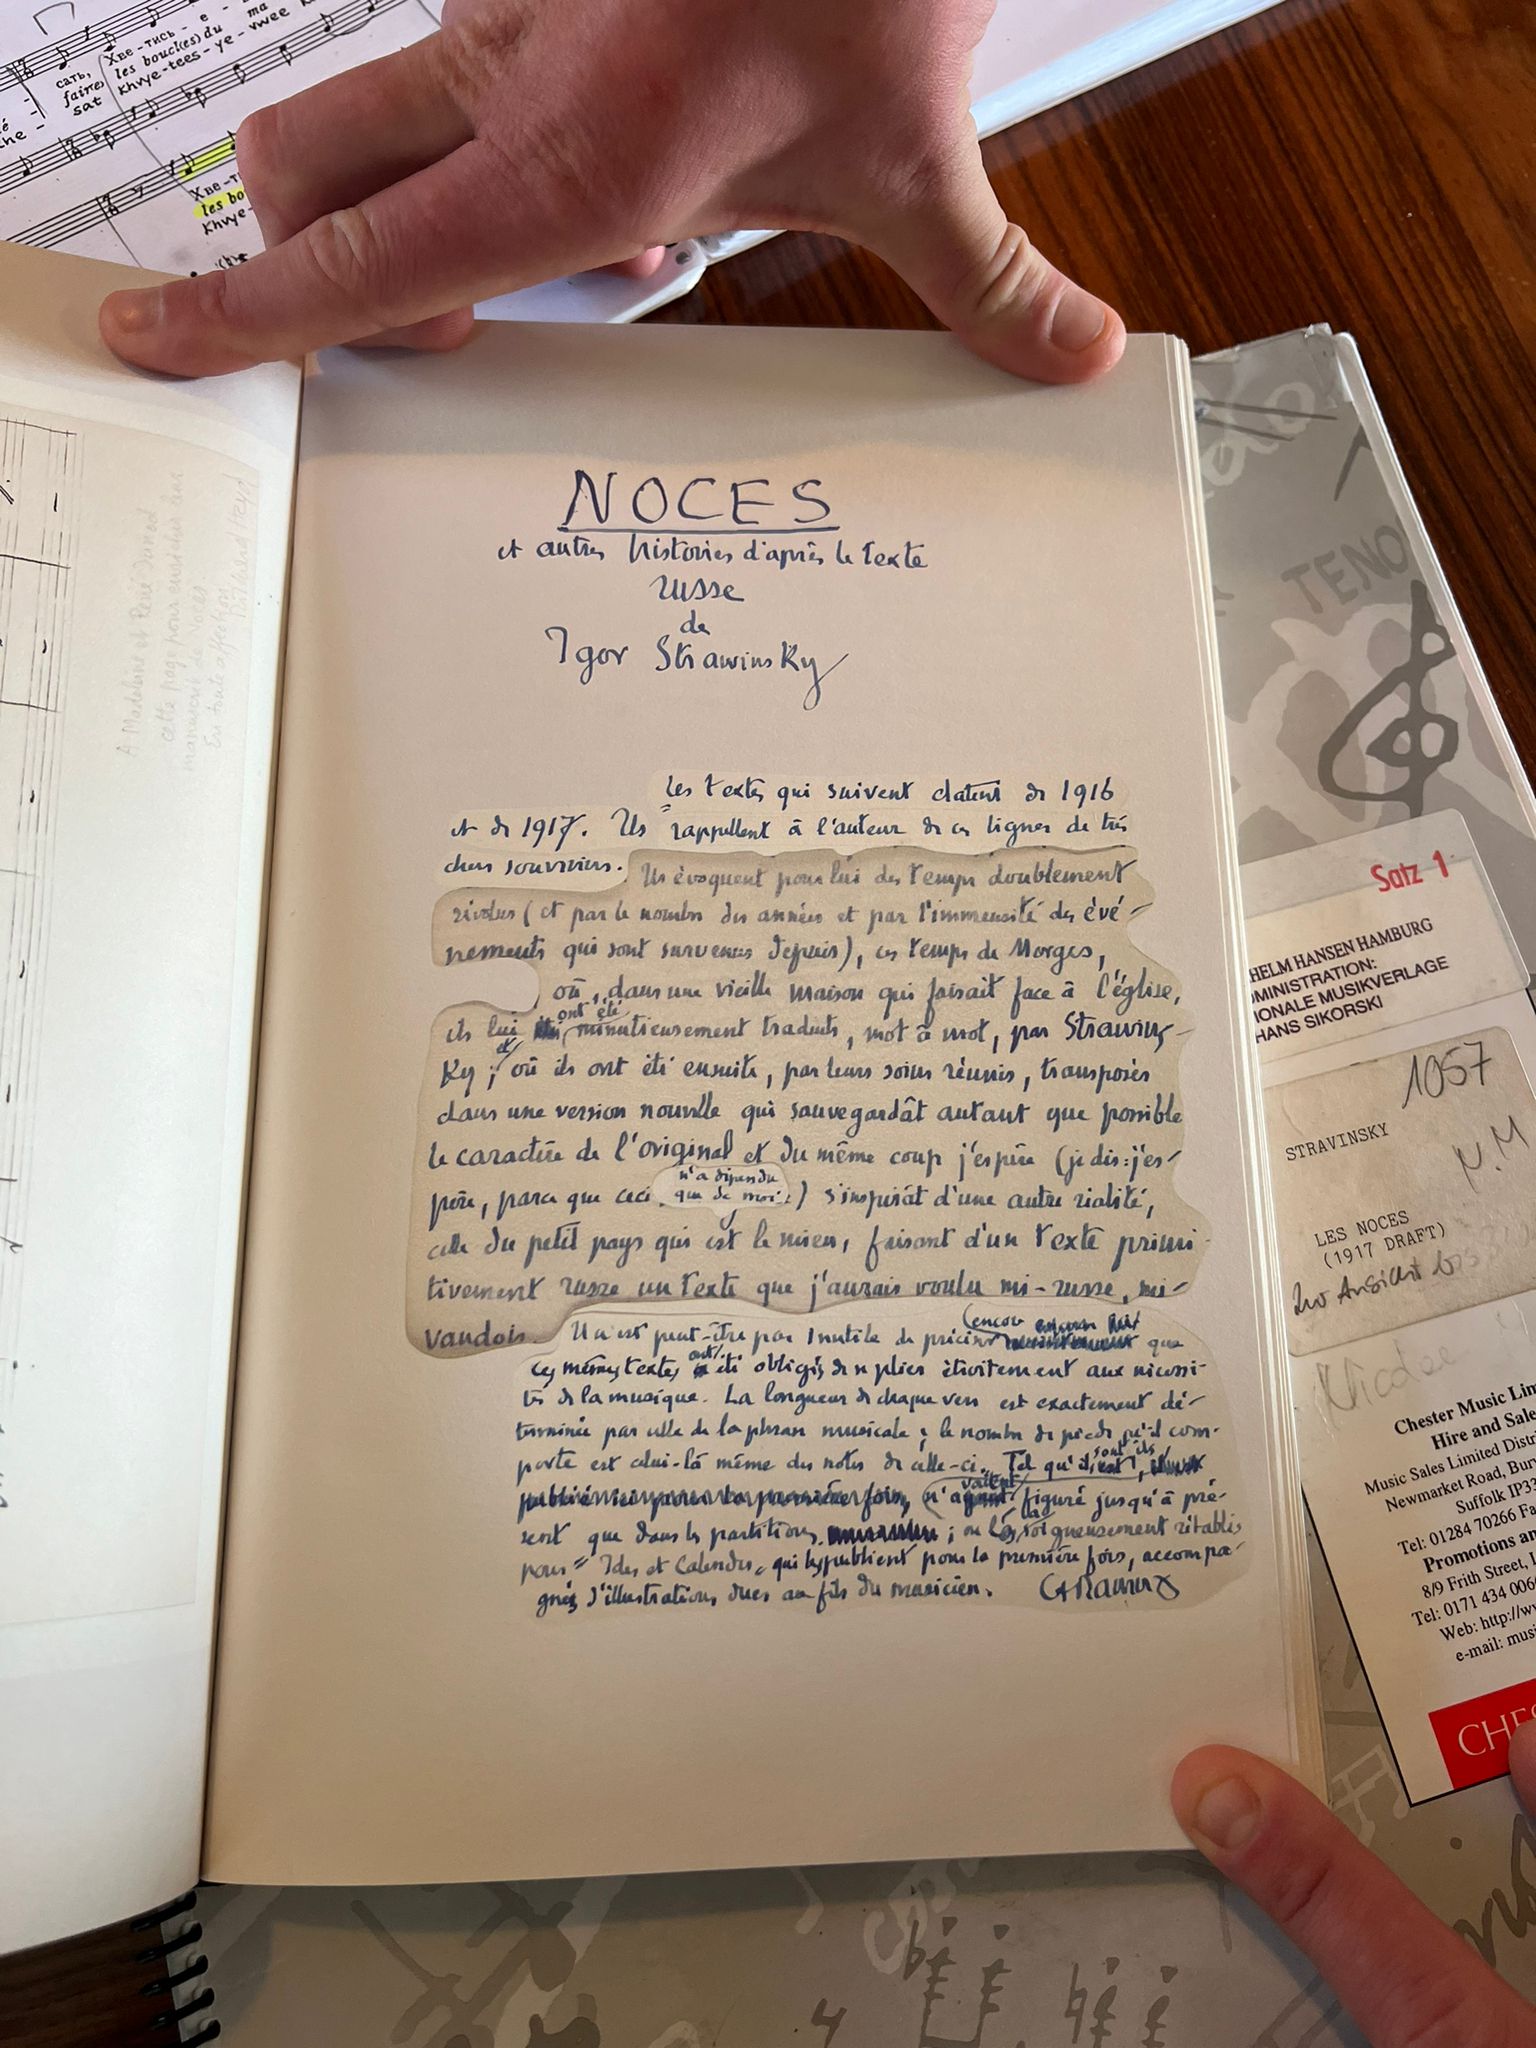 сать, Хве-тись-е-
faire) les boucl(es) du ma
sat khvye-tees-ye-vwee
Хве-т
les bo
Khvye-
A Madeleine et René
cette page pour enrichir leur
manuscrit de Noces
En toute affection
NOCES
et autres histoires d'après le texte
russe
de
Igor Strawinsky
Les textes qui suivent datent de 1916
et de 1917. Ils rappellent à l'auteur de ces lignes de très
chers souvenirs. Ils évoquent pour lui des temps doublement
révolus (et par le nombre des années et par l'immensité des évé-
nements qui sont survenus depuis), ces temps de Morges,
où, dans une vieille maison qui faisait face à l'église,
ils lui ont été minutieusement traduits, mot à mot, par Strawins-
ky ; et où ils ont été ensuite, par leurs soins réunis, transposés
dans une version nouvelle qui sauvegardât autant que possible
le caractère de l'original et du même coup j'espère (je dis : j'es-
père, parce que ceci n'a dépendu que de moi) s'inspirât d'une autre réalité,
celle du petit pays qui est le mien, faisant d'un texte primi-
tivement russe un texte que j'aurais voulu mi-russe, mi-
vaudois. Il n'est peut-être pas inutile de préciser encore que
ces mêmes textes ont été obligés de se plier étroitement aux nécessi-
tés de la musique. La longueur de chaque vers est exactement dé-
terminée par celle de la phrase musicale ; le nombre de pieds qu'il com-
porte est celui-là même des notes de celle-ci. Tel qu'ils sont,
publié ici pour la première fois, n'avaient figuré jusqu'à pré-
sent que dans les partitions ; on les a soigneusement rétablis
pour "Ides et Calendes" qui les publient pour la première fois, accompa-
gnés d'illustrations dues au fils du musicien. CF Ramuz
TENO
Satz 1
HELM HANSEN HAMBURG
DMINISTRATION:
IONALE MUSIKVERLAGE
HANS SIKORSKI
1057
STRAVINSKY
N.M
LES NOCES
(1917 DRAFT)
zur Ansicht bis
Chester Music Lim
Hire and Sale
Music Sales Limited Distri
Newmarket Road, Bury
Suffolk IP33
Tel: 01284 70266 Fa
Promotions an
8/9 Frith Street, L
Tel: 0171 434 006
Web: http://ww
e-mail: musi
CHES